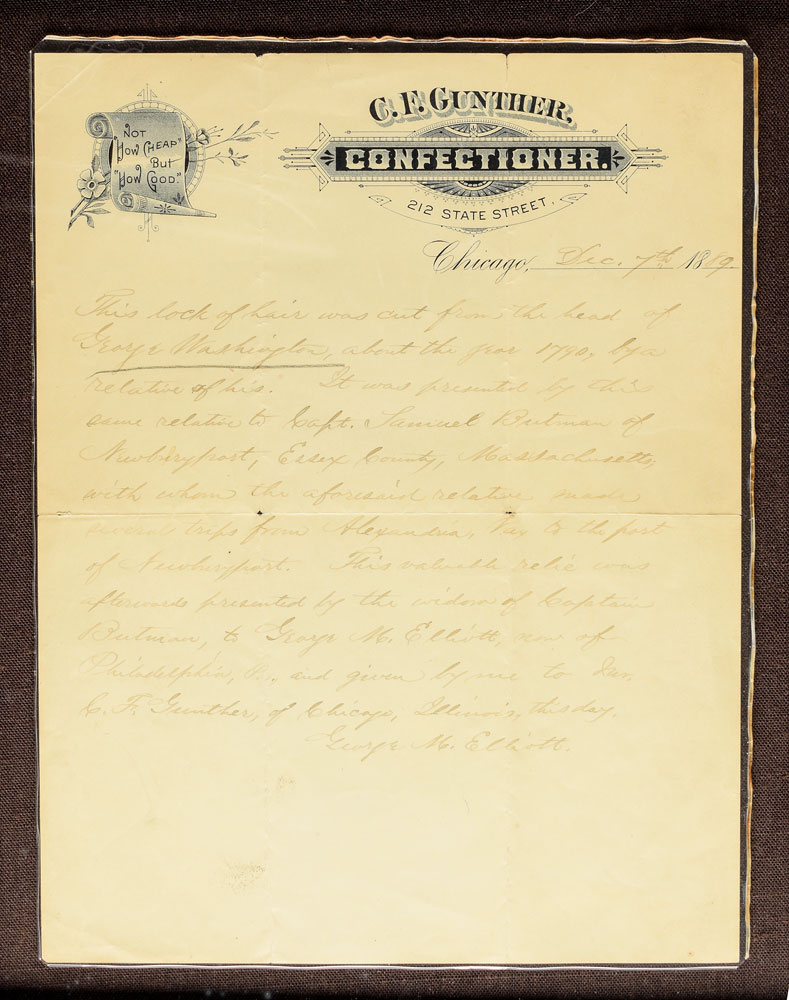 NOT
"HOW CHEAP"
BUT
"HOW GOOD"
C. F. GUNTHER,
CONFECTIONER.
212 STATE STREET,
Chicago, Dec. 7th 1889.
This lock of hair was cut from the head of
George Washington, about the year 1790, by a
relative of his. It was presented by this
same relative to Capt. Samuel Butman of
Newburyport, Essex County, Massachusetts,
with whom the aforesaid relative made
several trips from Alexandria, to the port
of Newburyport. This valuable relic was
afterwards presented by the widow of Captain
Butman, to George M. Elliott, now of
Philadelphia, and given by me to
C. F. Gunther, of Chicago, Illinois, this day.
George M. Elliott.